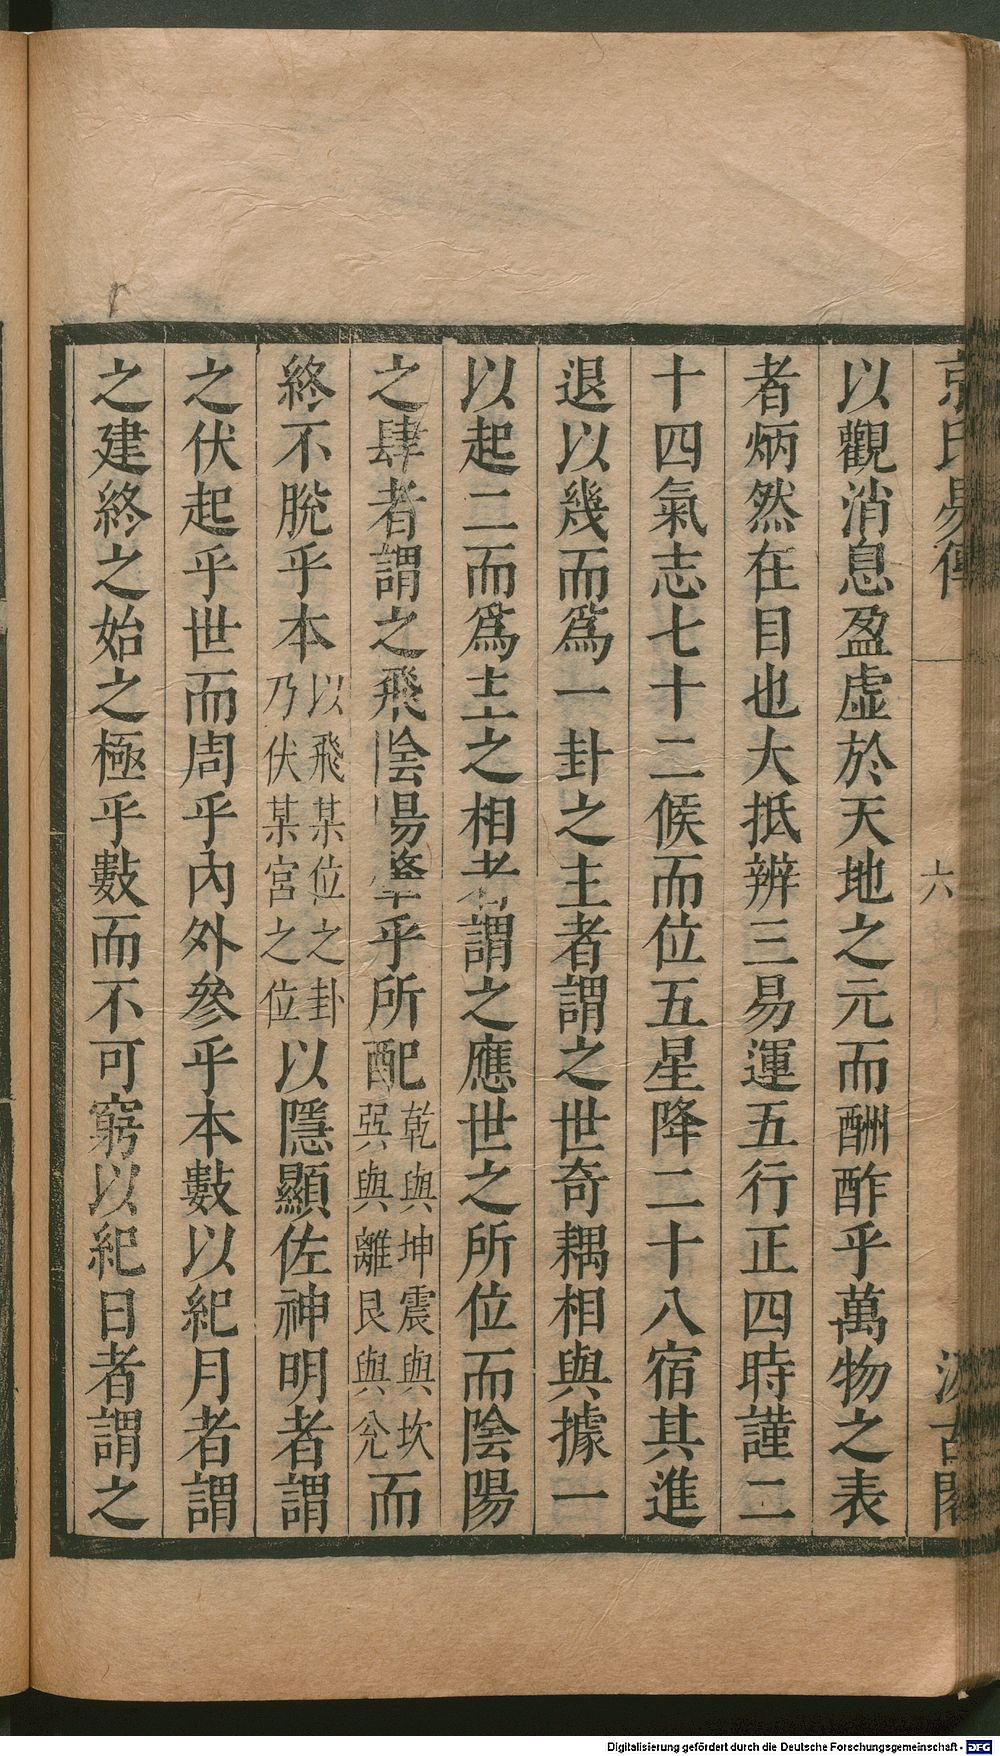 京氏易傳 六 汲古閣
以觀消息盈虛於天地之元而酬酢乎萬物之表
者炳然在目也大抵辨三易運五行正四時謹二
十四氣志七十二候而位五星降二十八宿其進
退以幾而爲一卦之主者謂之世奇耦相與據一
以起二而爲主之相者謂之應世之所位而陰陽
之肆者謂之飛陰陽肇乎所配乾與坤震與坎巽與離艮與兌而
終不脫乎本以飛某位之卦乃伏某宮之位以隱顯佐神明者謂
之伏起乎世而周乎內外參乎本數以紀月者謂
之建終之始之極乎數而不可窮以紀日者謂之
Digitalisierung gefördert durch die Deutsche Forschungsgemeinschaft - DFG